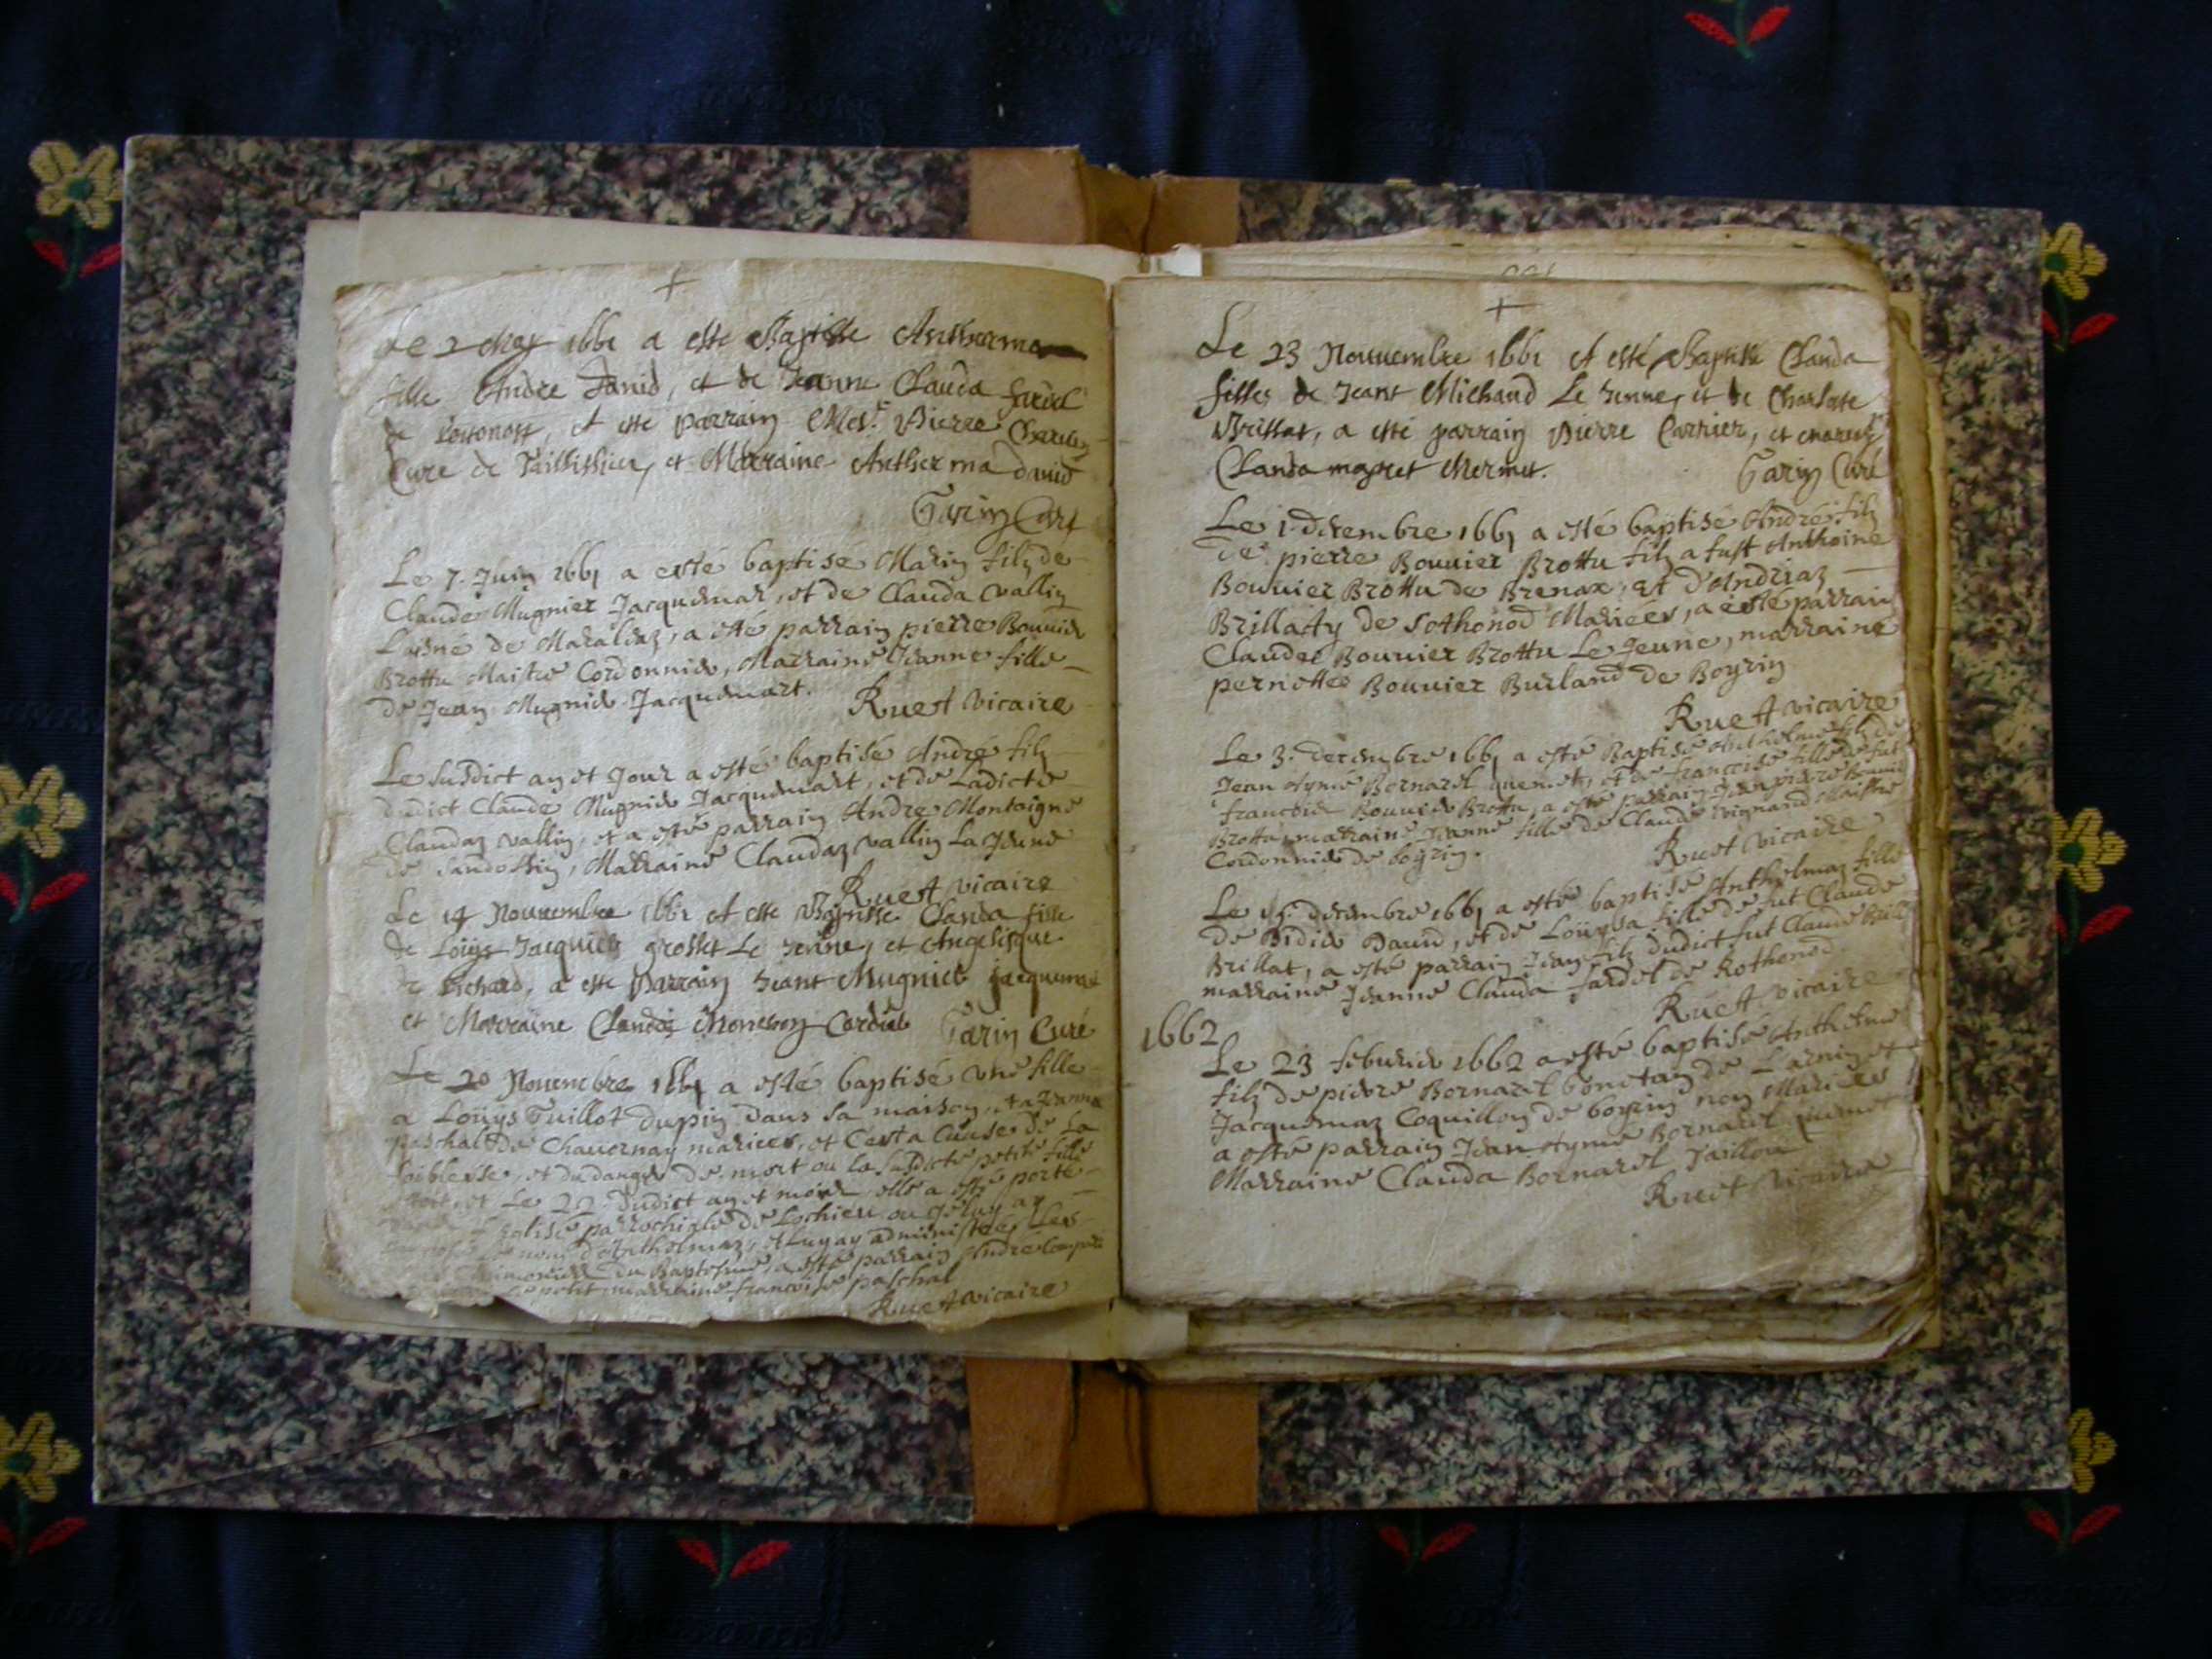 Le 2 May 1661 a esté Baptisée Antherma
fille Andre David, et de Jeanne Clauda fardel
de Sothonost, et esté parrain Mes.r Pierre
Curé de et Marraine Antherma David
Garin Curé
Le 7. Juin 1661 a esté baptisé Marin filz de
Claude Mugnier Jacquemar, et de Clauda vallin
Laisné de a esté parrain pierre Bouuier
Brottu Maitre Cordonnier, Marraine Jeanne fille
de Jean Mugnier Jacquemart. Ruet vicaire
Le susdict an et Jour a esté baptisé André filz
dudict Claude Mugnier Jacquemart, et de Ladicte
Claudaz vallin, et a esté parrain Andre Montaigne
de Marraine Claudaz vallin La Jeune
Ruet vicaire
Le 14 Nouuembre 1661 A esté Baptisée Clauda fille
de Loüys Jacquier grosset Le Jeune, et Angelique
de Richard, a esté Parrain Jeant Mugnier Jacquemar
et Marraine Claudaz Garin Curé
Le 20 Nouembre 1661 a esté baptisé une fille
a Loüys Tuillot dupin dans sa maison, et a Jeanne
paschal de Chauornay mariees, et C'est a Cause de La
foiblesse, et du danger de mort ou la susdicte petite fille
estoit, et Le 22 dudict an et mois elle a esté porté
L'Eglise parrochiale de Lochieu ou Je luy ay
nom d'Anthelmaz, et Luy ay administré Les
du Baptesme, a esté parrain André
petit, marraine francoise paschal
Ruet vicaire
Le 23 Nouuembre 1661 A esté Baptisée Clauda
filles de Jeant Michaud Le Jeune, et de Charlotte
Brillat, a esté parrain Pierre Carrier, et
Clauda Mermet. Garin Curé
Le 1. decembre 1661 a esté baptisé André filz
de pierre Bouuier Brottu filz a fust Anthoine
Bouuier Brottu de Brenax, Et D'Andriaz
Brillat de Sothonod Mariées, a esté parrain
Claudet Bouuier Brottu Le Jeune, marraine
pernette Bouuier Burland de Boyrin
Ruet vicaire
Le 3. decembre 1661 a esté Baptisé Anthelme filz de
Jean Aymé Bornarel quemet, et de francoise fille de fut
francois Bouuier Brottu, a esté parrain Jean pierre Bouuier
Brottu marraine Jeanne fille de Claude vignand Maistre
Cordonnier de boyrin. Ruet vicaire
Le 15. decembre 1661 a esté baptisé Anthelmaz fille
de Didier David, et de Loüysa fille de fut Claude
Brillat, a esté parrain Jean filz dudict fut Claude Brillat
marraine Jeanne Clauda fardel de Rothonod
Ruet vicaire
1662
Le 23 feburier 1662 a esté baptisé Anthelme
filz de pierre Bornarel bonetan de Larnin et
Jacquemaz Coquillon de boyrin non Mariées
a esté parrain Jean Aymé Bornarel quemet
Marraine Clauda Bornarel Taillon
Ruet vicaire